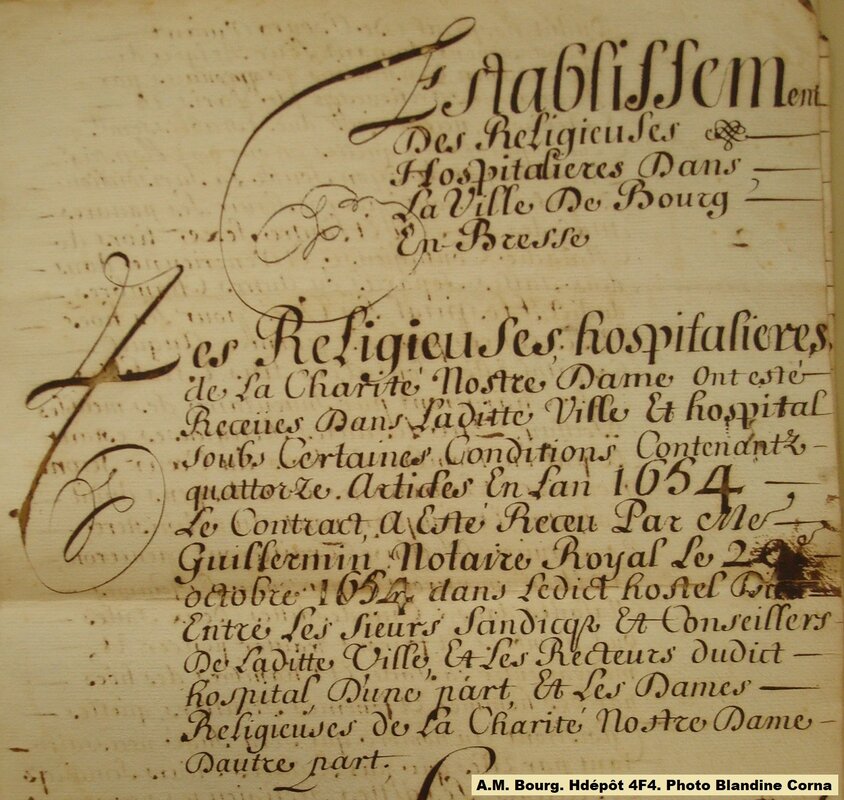 Establissement
Des Religieuses
Hospitalieres Dans
La Ville De Bourg
En Bresse
Les Religieuses, hospitalieres,
de La Charité Nostre Dame Ont esté
Receües Dans Laditte Ville Et hospital
soubs Certaines Conditions Contenantz
quattorze. Articles En Lan 1654
Le Contract, A Esté Receu Par Me
Guillermin Notaire Royal Le
octobre 1654 dans Ledict hostel
Entre Les sieurs Sandicqz Et Conseillers
De Laditte Ville, Et Les Recteurs dudict
hospital, D'une part, Et Les Dames
Religieuses de La Charité Nostre Dame
Dautre part.
A.M. Bourg. Hdépôt 4F4. Photo Blandine Corna